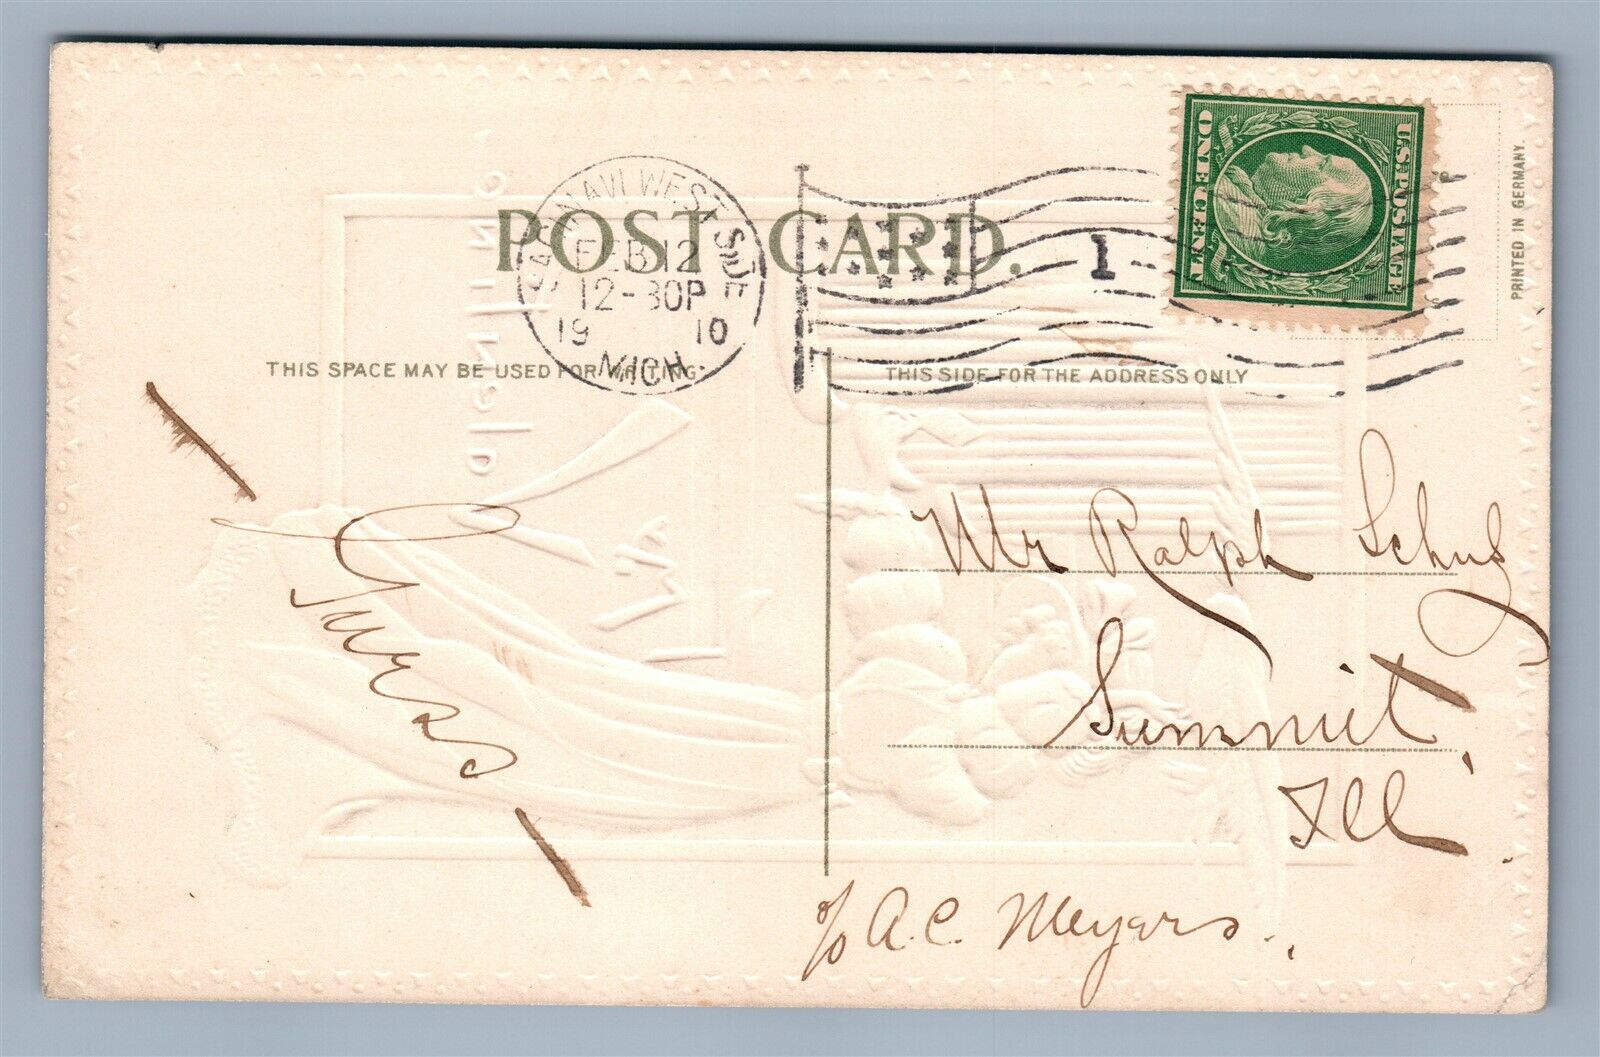 POST CARD.
SAGINAW WEST SIDE
FEB 12
12-30P
19 10
MICH.
1
U.S. POSTAGE
ONE CENT
PRINTED IN GERMANY.
THIS SPACE MAY BE USED FOR WRITING.
THIS SIDE FOR THE ADDRESS ONLY
Mr Ralph Schulz
Summit,
Ill.
c/o A.C. Meyers.